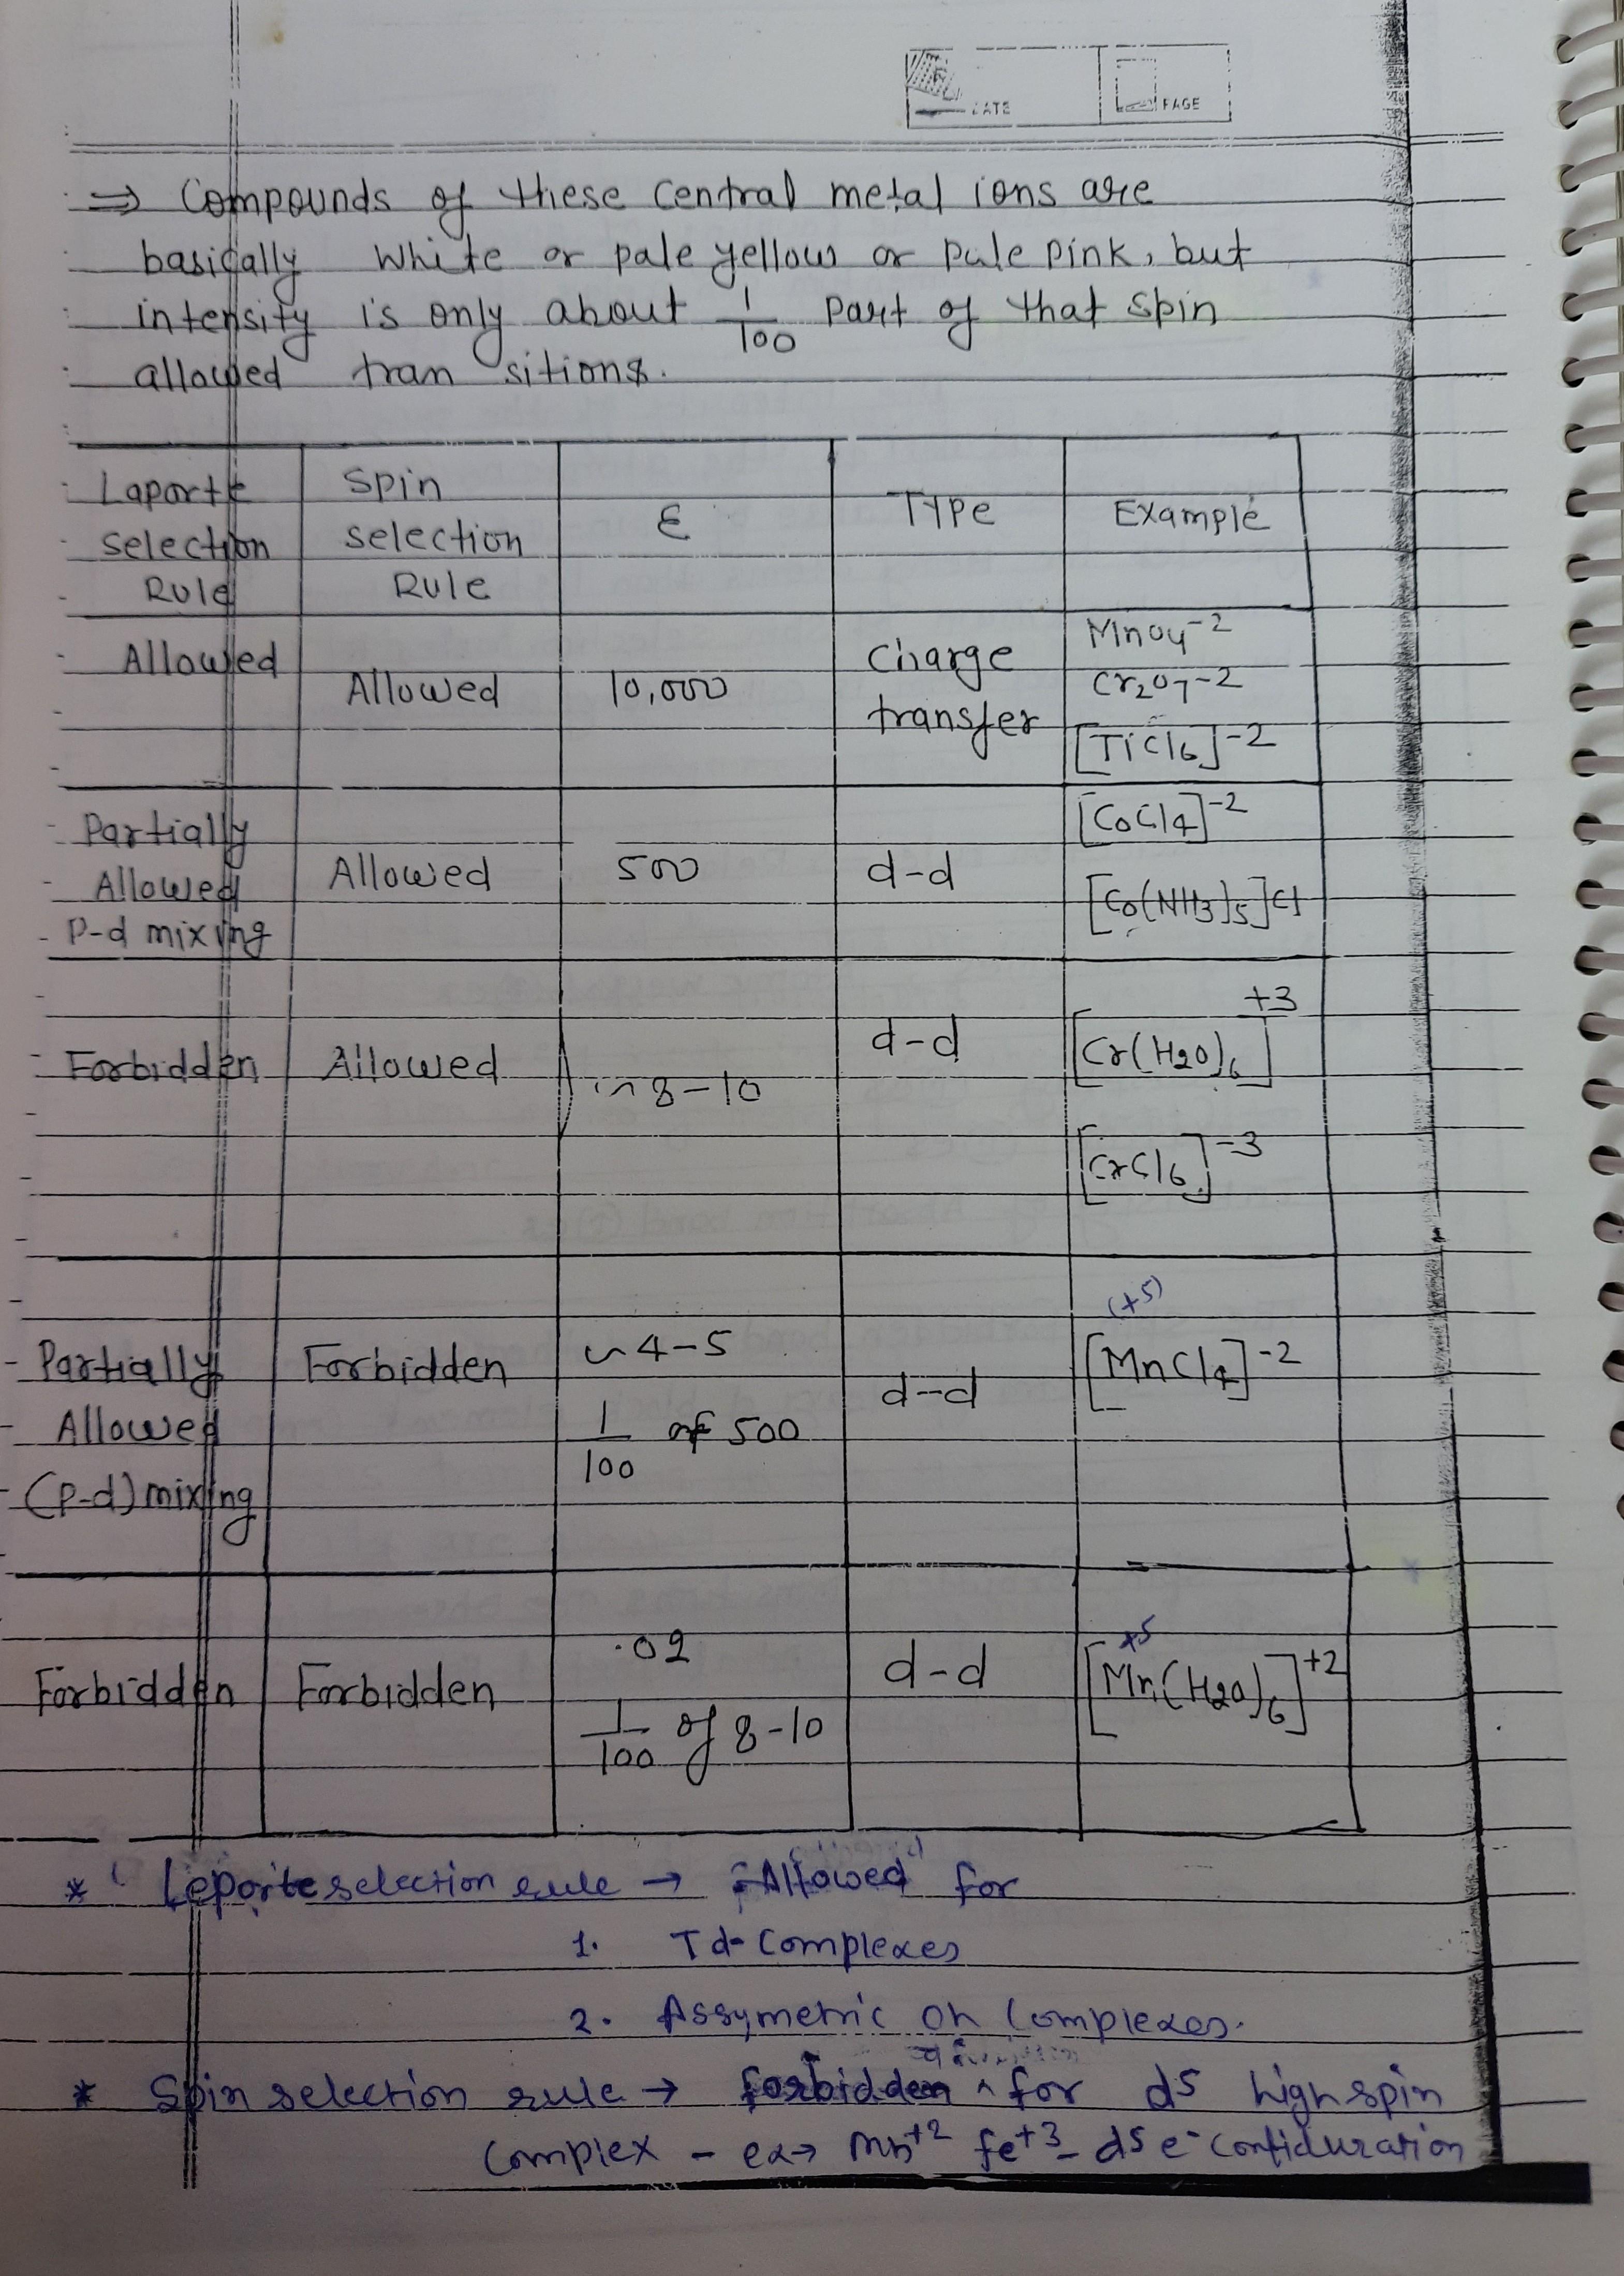 DATE PAGE
⇒ Compounds of these central metal ions are
basically white or pale yellow or pale pink, but
intensity is only about 1/100 part of that spin
allowed tran sitions.
Laporte selection Rule | Spin selection Rule | ε | Type | Example
Allowed | Allowed | 10,000 | Charge transfer | MnO4⁻² Cr2O7⁻² [TiCl6]⁻²
Partially Allowed P-d mixing | Allowed | 500 | d-d | [CoCl4]⁻² [Co(NH3)5]Cl
Forbidden | Allowed | ~8-10 | d-d | [Cr(H2O)6]⁺³ [CrCl6]⁻³
Partially Allowed (P-d) mixing | Forbidden | ~4-5 1/100 of 500 | d-d | (+5) [MnCl4]⁻²
Forbidden | Forbidden | .02 1/100 of 8-10 | d-d | +5 [Mn(H2O)6]⁺²
* Leporte selection rule → Allowed for
1. Td- Complexes
2. Assymetric Oh Complexes.
* Spin selection rule → forbidden ^ for d5 high spin
Complex - ex→ Mn⁺² fe⁺³- d5 e⁻ configuration